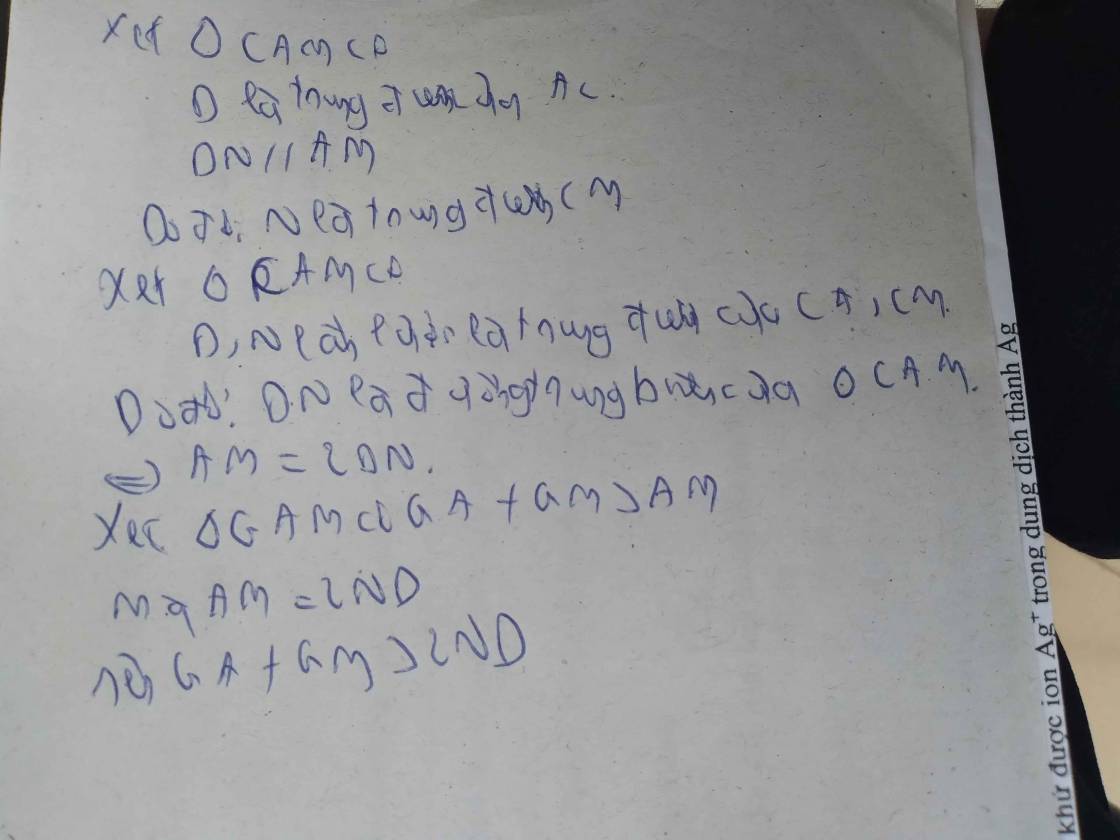 Xét Δ CAM có
D là trung điểm của AC.
DN // AM
Do đó: N là trung điểm CM
Xét Δ CAM có
D, N lần lượt là trung điểm của CA, CM.
Do đó: DN là đường trung bình của Δ CAM.
=> AM = 2DN.
Xét ΔGAM có GA + GM > AM
mà AM = 2ND
nên GA + GM > 2ND
khử được ion Ag⁺ trong dung dịch thành Ag